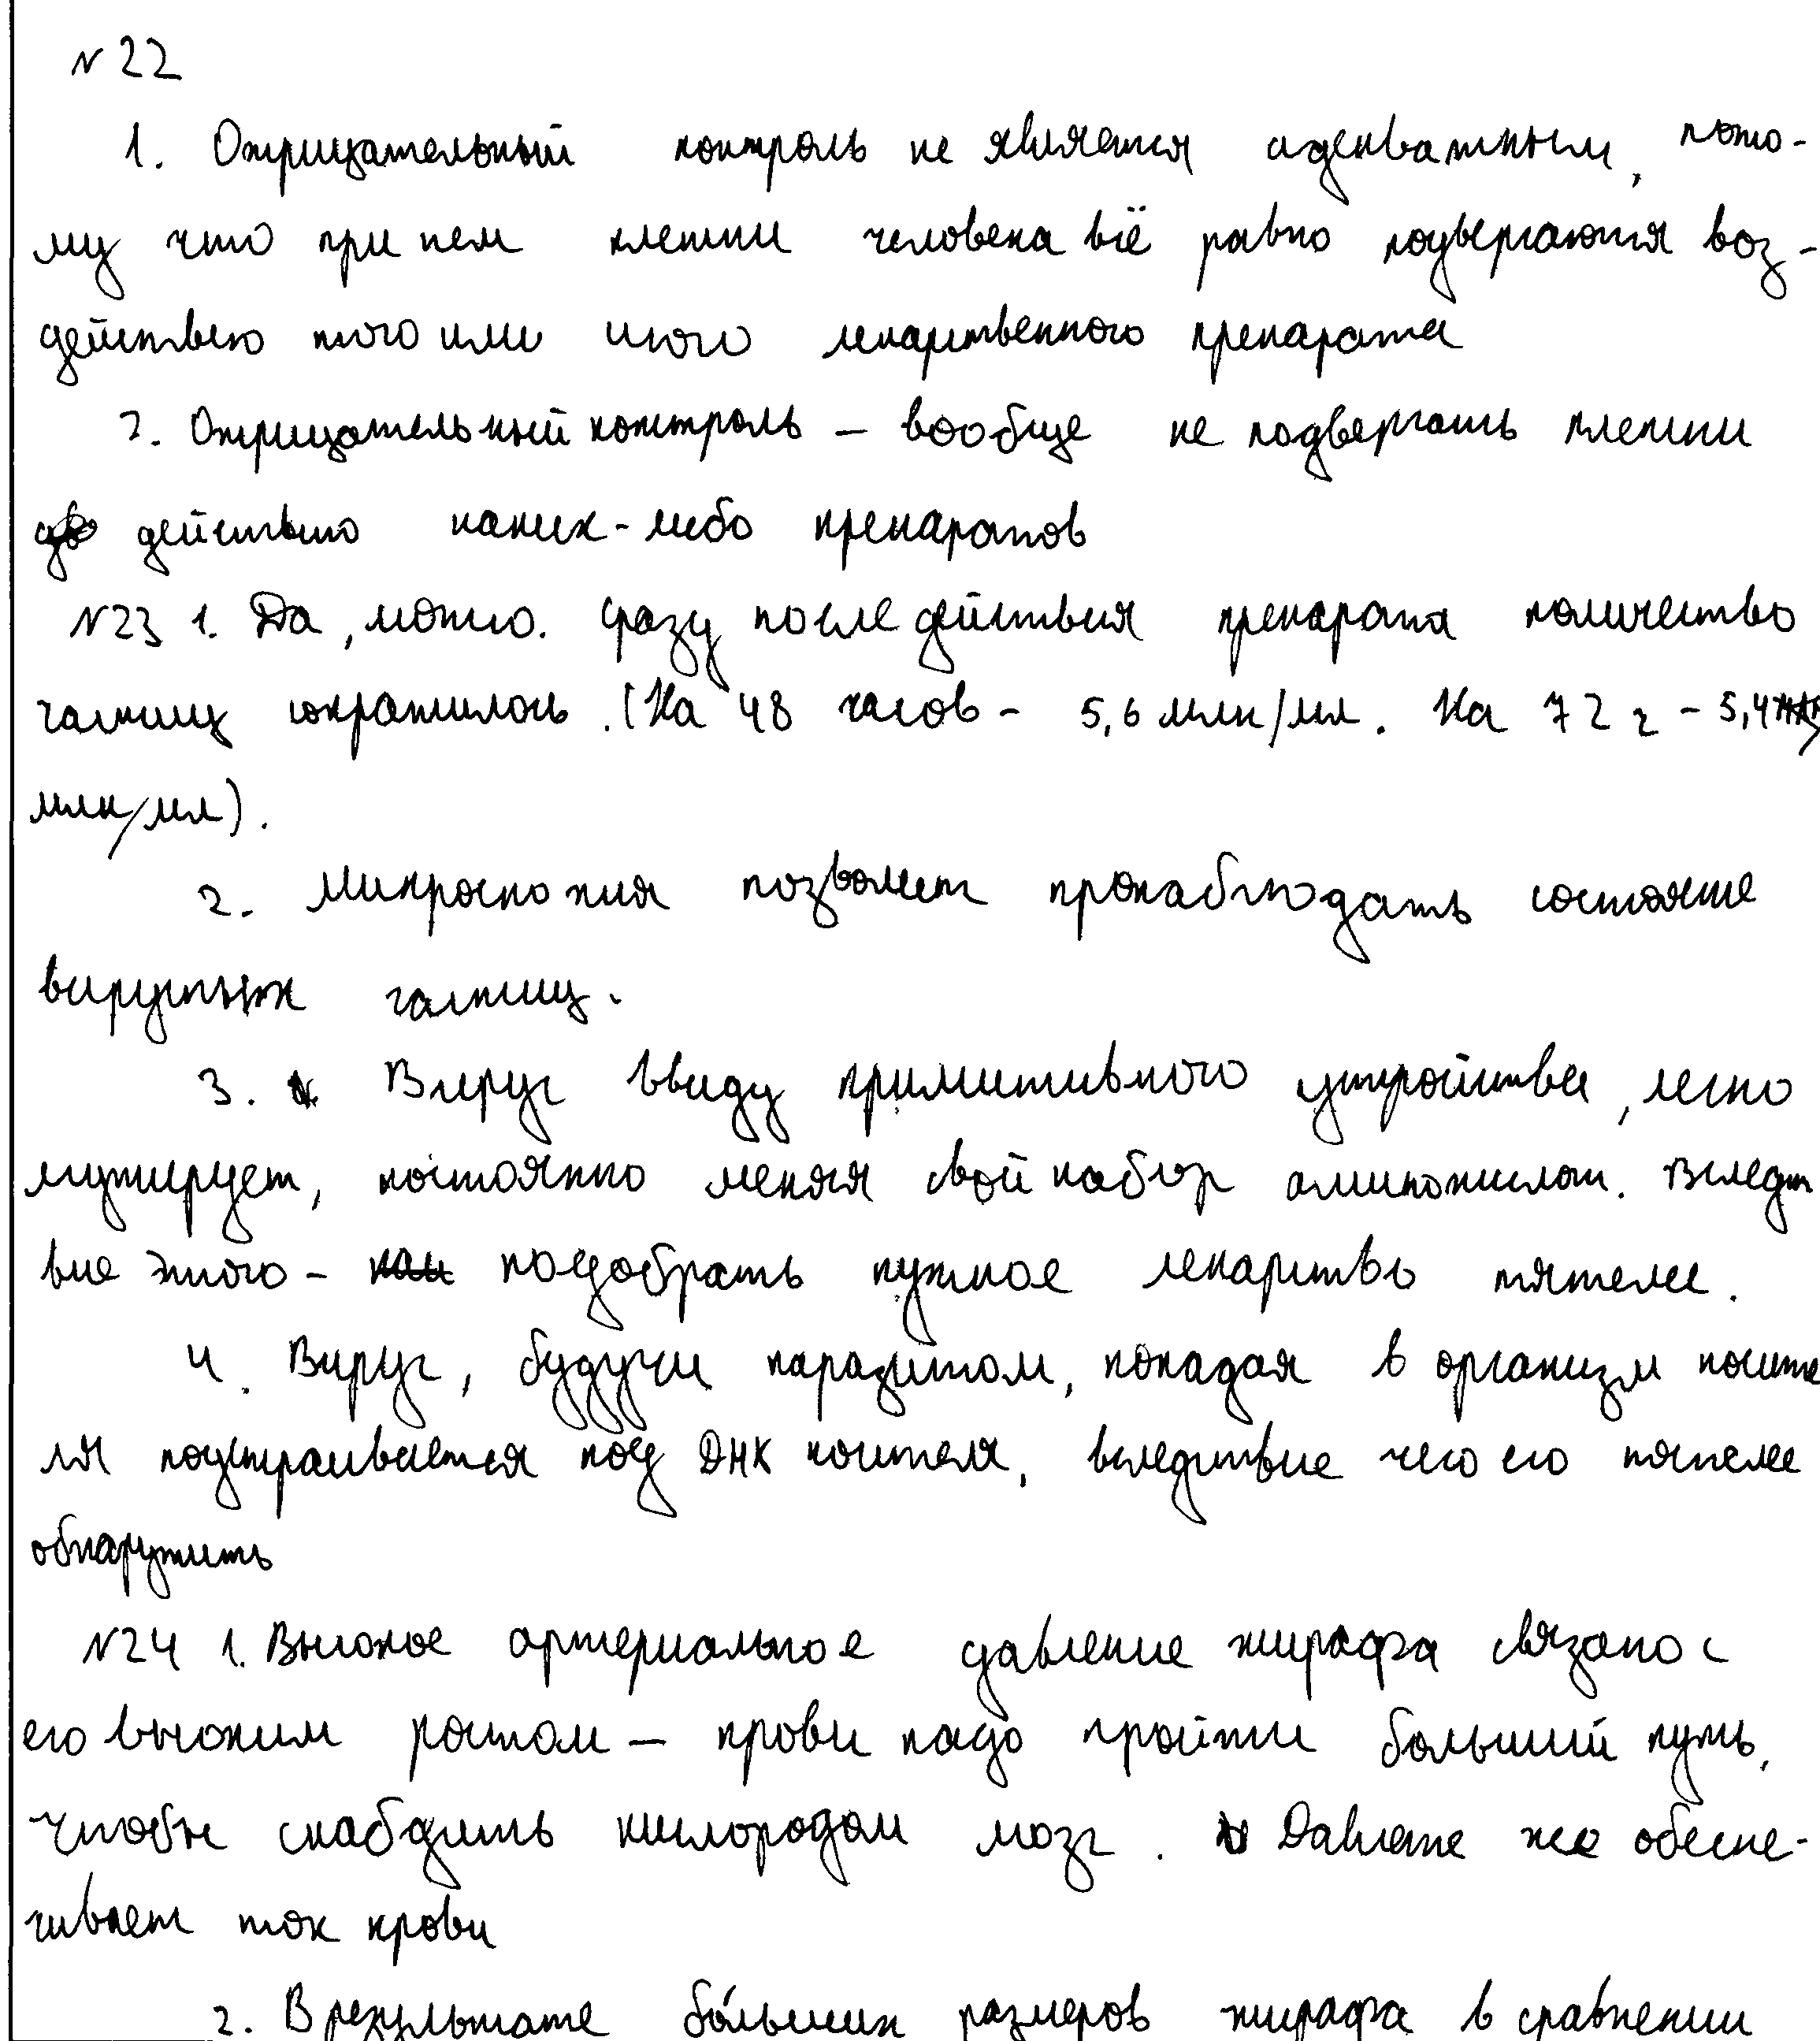 №22
1. Отрицательный контроль не является адекватным, пото-
му что при нем клетки человека всё равно подвергаются воз-
действию того или иного лекарственного препарата
2. Отрицательный контроль – вообще не подвергать клетки
действию каких-либо препаратов
№23 1. Да, можно. Сразу после действия препарата количество
частиц сократилось. (На 48 часов - 5,6 млн/мл. На 72 ч - 5,4
млн/мл).
2. Микроскопия позволяет пронаблюдать состояние
вирусных частиц.
3. Вирус ввиду примитивного устройства, легко
мутирует, постоянно меняя свой набор аминокислот. Вследст
вие этого - подобрать нужное лекарство тяжелее.
4. Вирус, будучи паразитом, попадая в организм носите
ля подстраивается под ДНК носителя, вследствие чего его тяжелее
обнаружить
№24 1. Высокое артериальное давление жирафа связано с
его высоким ростом – крови надо пройти больший путь,
чтобы снабдить кислородом мозг. Давление же обеспе-
чивает ток крови
2. В результате бо́льших размеров жирафа в сравнении